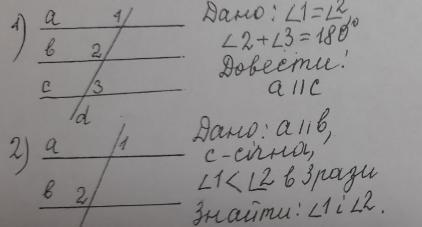 1) a 1 Дано: ∠1=∠2
b 2 ∠2+∠3=180°
c 3 Довести:
d a||c
2) a 1 Дано: a||b,
c-січна,
b 2 ∠1<∠2 в 3 рази
Знайти: ∠1 і ∠2.